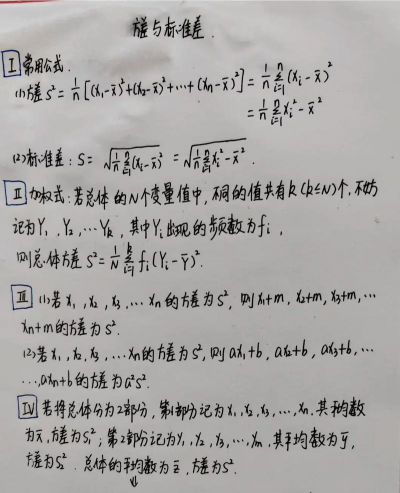 方差与标准差.
Ⅰ 常用公式.
(1)方差 S²=1/n[(x₁-x̄)²+(x₂-x̄)²+…+(xₙ-x̄)²]=1/n ∑ᵢ₌₁ⁿ(xᵢ-x̄)²
=1/n ∑ᵢ₌₁ⁿ xᵢ²-x̄²
(2)标准差: S=√(1/n ∑ᵢ₌₁ⁿ(xᵢ-x̄)²) =√(1/n ∑ᵢ₌₁ⁿ xᵢ²-x̄²).
Ⅱ 加权式:若总体的N个变量值中,不同的值共有k(k≤N)个,不妨
记为Y₁,Y₂,…Yₖ,其中Yᵢ出现的频数为fᵢ,
则总体方差 S²=1/N ∑ᵢ₌₁ᵏ fᵢ(Yᵢ-Ȳ)².
Ⅲ (1)若x₁,x₂,x₃,…xₙ的方差为S²,则x₁+m,x₂+m,x₃+m,…
xₙ+m的方差为S².
(2)若x₁,x₂,x₃,…xₙ的方差为S²,则ax₁+b,ax₂+b,ax₃+b,…
…,axₙ+b的方差为a²S².
Ⅳ 若将总体分为2部分,第1部分记为x₁,x₂,x₃,…,xₙ,其平均数
为x̄,方差为S₁²;第2部分记为y₁,y₂,y₃,…,yₘ,其平均数为ȳ,
方差为S₂².总体的平均数为z̄,方差为S².